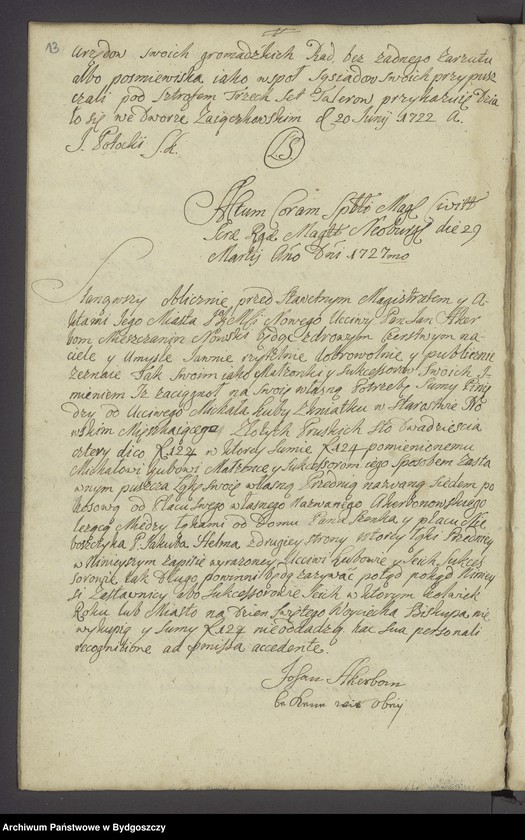 13
urzędow swoich gromadzkich Rad, bez żadnego zarzutu
albo posmiewiska iako wspoł Sąsiadow Swoich przypusz
czali pod Sztrofem Trzech Set Talerow przykazuię Dzia
ło się we Dworze Zaiączkowskim d 20 Junij 1722 A.
S. Potocki S.k.
L.S.
Actum Coram Spttli Mag Civitt
Scre Rgae Magtt Neoburg die 29
Martij Ano Dni 1727mo
Stanąwszy oblicznie przed Sławetnym Magistratem y A-
ktami Jego Miasta Nowego Uciwy Pan Jan Aker
bom Mieszczanin Nowski będąc zdrowym czerstwym na
ciele y Umysle Jawnie rzetelnie dobrowolnie y publicznie
zeznał Jak Swoim iako Małzonki y Sukcessorow Swoich I-
mieniem Iz zaciągnoł na Swoię własną Potrzeby Sumy Pinię
dzy od Uciwego Michala Kuby w Starostwie No
wskim Mięszkaiącego Złotych Pruskich Sto Dwadziescia
cztery dico R 124 w ktory Sumie R 124 pomienionemu
Michałowi Kubowi Małzonce y Sukcessorom iego Sposobem Zasta
wnym puszcza Łąkę Swoię własną Srednią nazwaną Siedem po
kosową od Placu Swego własnego Nazwanego Akerbomowskiego
lezącą Miedzy Łąkami od Domu Pana Szenka y placu Nie
boszczyka P. Jakuba Helma zdrugiey strony ktory łąki Sredniey
w Ninieyszym Zapisie wyrazoney Uciwi Kubowie y Jeich Sukces
sorowie tak Długo powinni będą zazywać potąd pokąd
si Zastawnicy albo Sukcessorowie Jeich w ktorym kolwiek
Roku lub Miasto na Dzien Swiętego Woyciecha Biskupa nie
wykupią y Sumy R 124 nieoddadzą hac Sua personali
recognitione ad pmissa accedente.
Johan Akerbom